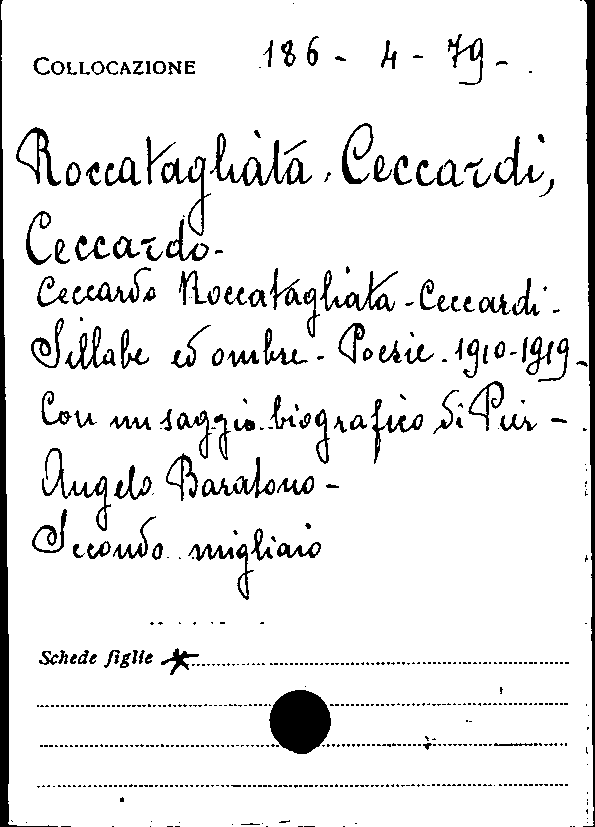 COLLOCAZIONE 186 - 4 - 79 -
Roccatagliata Ceccardi,
Ceccardo -
Ceccardo Roccatagliata - Ceccardi -
Sillabe ed ombre - Poesie - 1910-1919 -
Con un saggio biografico di Pier -
Angelo Baratono -
Secondo migliaio
Schede figlie *